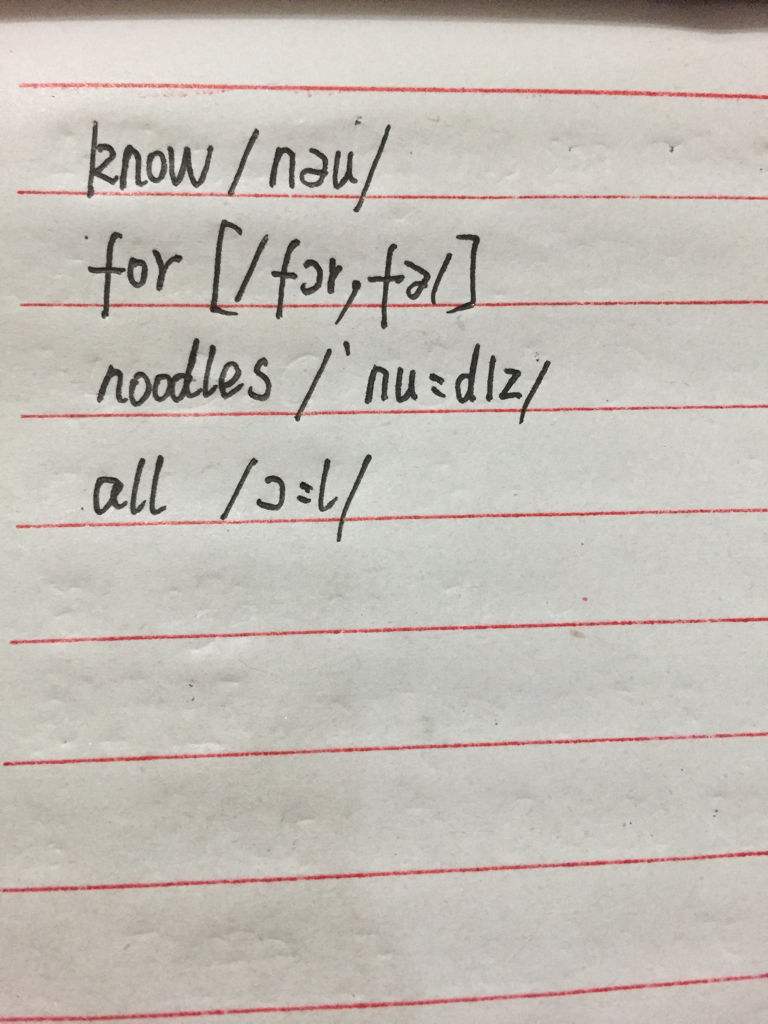 know /nəu/
for [/fɔr, fə/]
noodles /ˋnu:dlz/
all /ɔ:l/